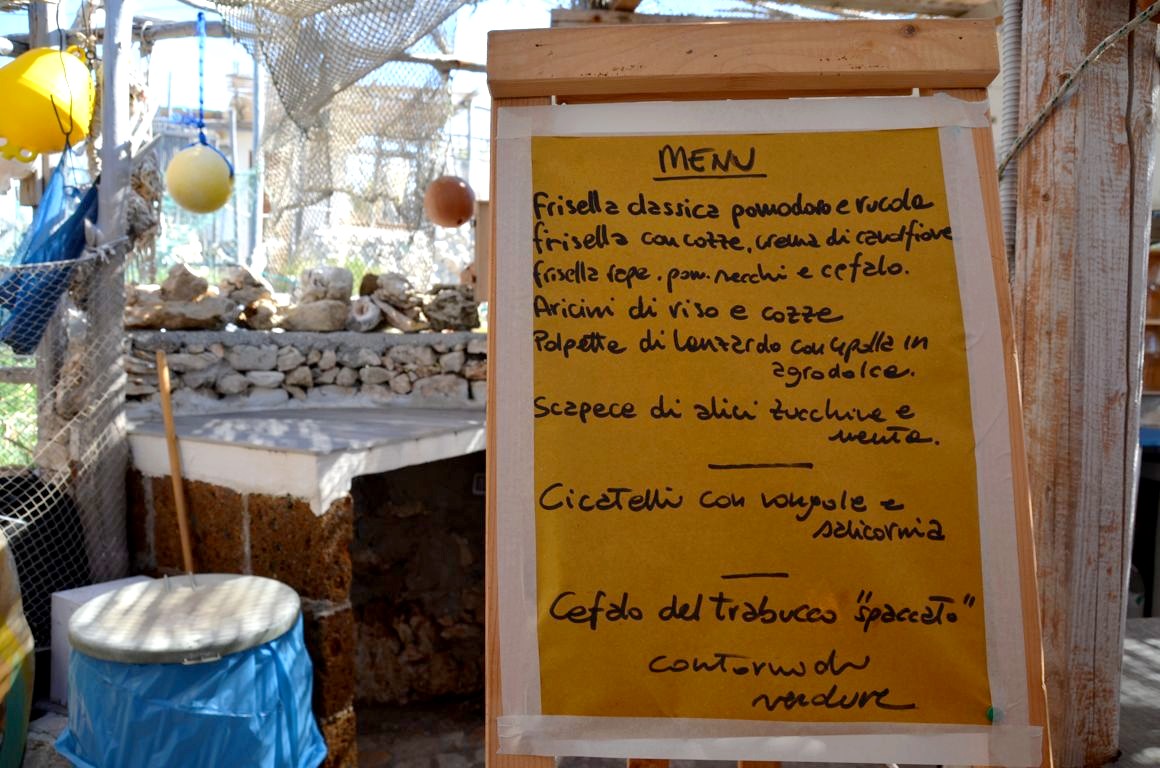 MENU
Frisella classica pomodoro e rucola
frisella con cozze, crema di cavolfiore
frisella rape. pom. secchi e cefalo.
Arancini di riso e cozze
Polpette di lanzardo con cipolla in
agrodolce.
Scapece di alici zucchine e
menta.
Cicatelli con vongole e
salicornia
Cefalo del trabucco "spaccato"
contorno di
verdure